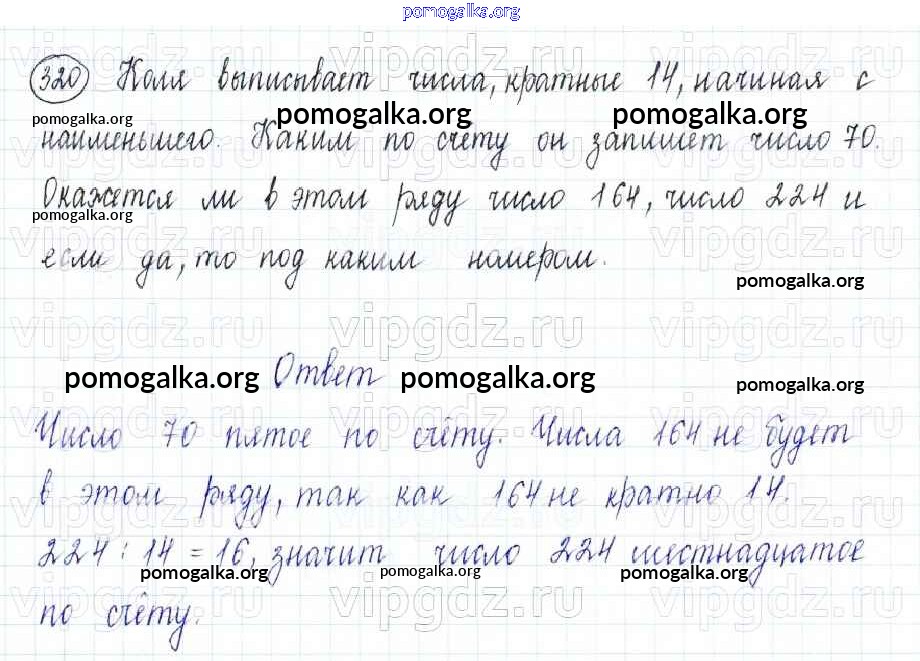 pomogalka.org
320 Коля выписывает числа, кратные 14, начиная с
pomogalka.org pomogalka.org pomogalka.org
наименьшего. Каким по счёту он запишет число 70.
Окажется ли в этом ряду число 164, число 224 и
pomogalka.org
если да, то под каким номером.
pomogalka.org
vipgdz.ru vipgdz.ru vipgdz.ru
Ответ
pomogalka.org pomogalka.org pomogalka.org
Число 70 пятое по счёту. Числа 164 не будет
в этом ряду, так как 164 не кратно 14.
224 : 14 = 16, значит число 224 шестнадцатое
pomogalka.org pomogalka.org pomogalka.org
по счёту.